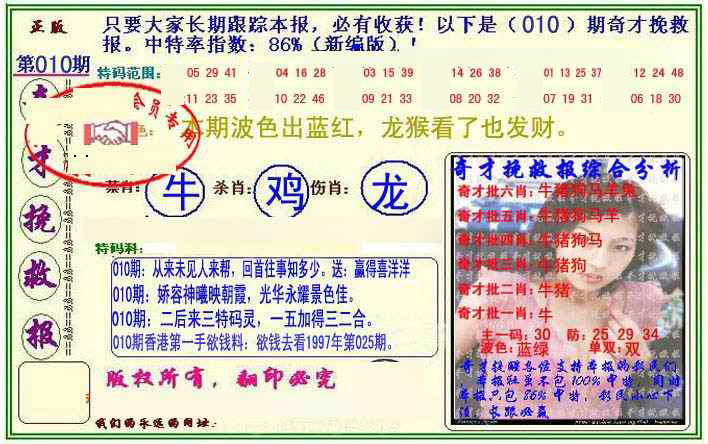 正版
只要大家长期跟踪本报，必有收获！以下是（010）期奇才挽救
报。中特率指数：86%（新编版）！
第010期
特码范围：
05 29 41 04 16 28 03 15 39 14 26 38 01 13 25 37 12 24 48
11 23 35 10 22 46 09 21 33 08 20 32 07 19 31 06 18 30
会员专用
本期波色出蓝红，龙猴看了也发财。
才
挽
救
报
禁肖：牛 杀肖：鸡 伤肖：龙
特码科：
010期：从来未见人来帮，回首往事知多少。送：赢得喜洋洋
010期：娇容神曦映朝霞，光华永耀景色佳。
010期：二后来三特码灵，一五加得三二合。
010期香港第一手欲钱料：欲钱去看1997年第025期。
版权所有，翻印必究
我们的永远的网址：
奇才挽救报综合分析
奇才批六肖：牛猪狗马羊兔
奇才批五肖：牛猪狗马羊
奇才批四肖：牛猪狗马
奇才批三肖：牛猪狗
奇才批二肖：牛猪
奇才批一肖：牛
主一码：30 防：25 29 34
波色：蓝绿 单双：双
奇才挽救各位支持本报的彩民们
本报社虽不包100%中特，同时
本报只包86%中特，彩民小心下
注，长跟必赢